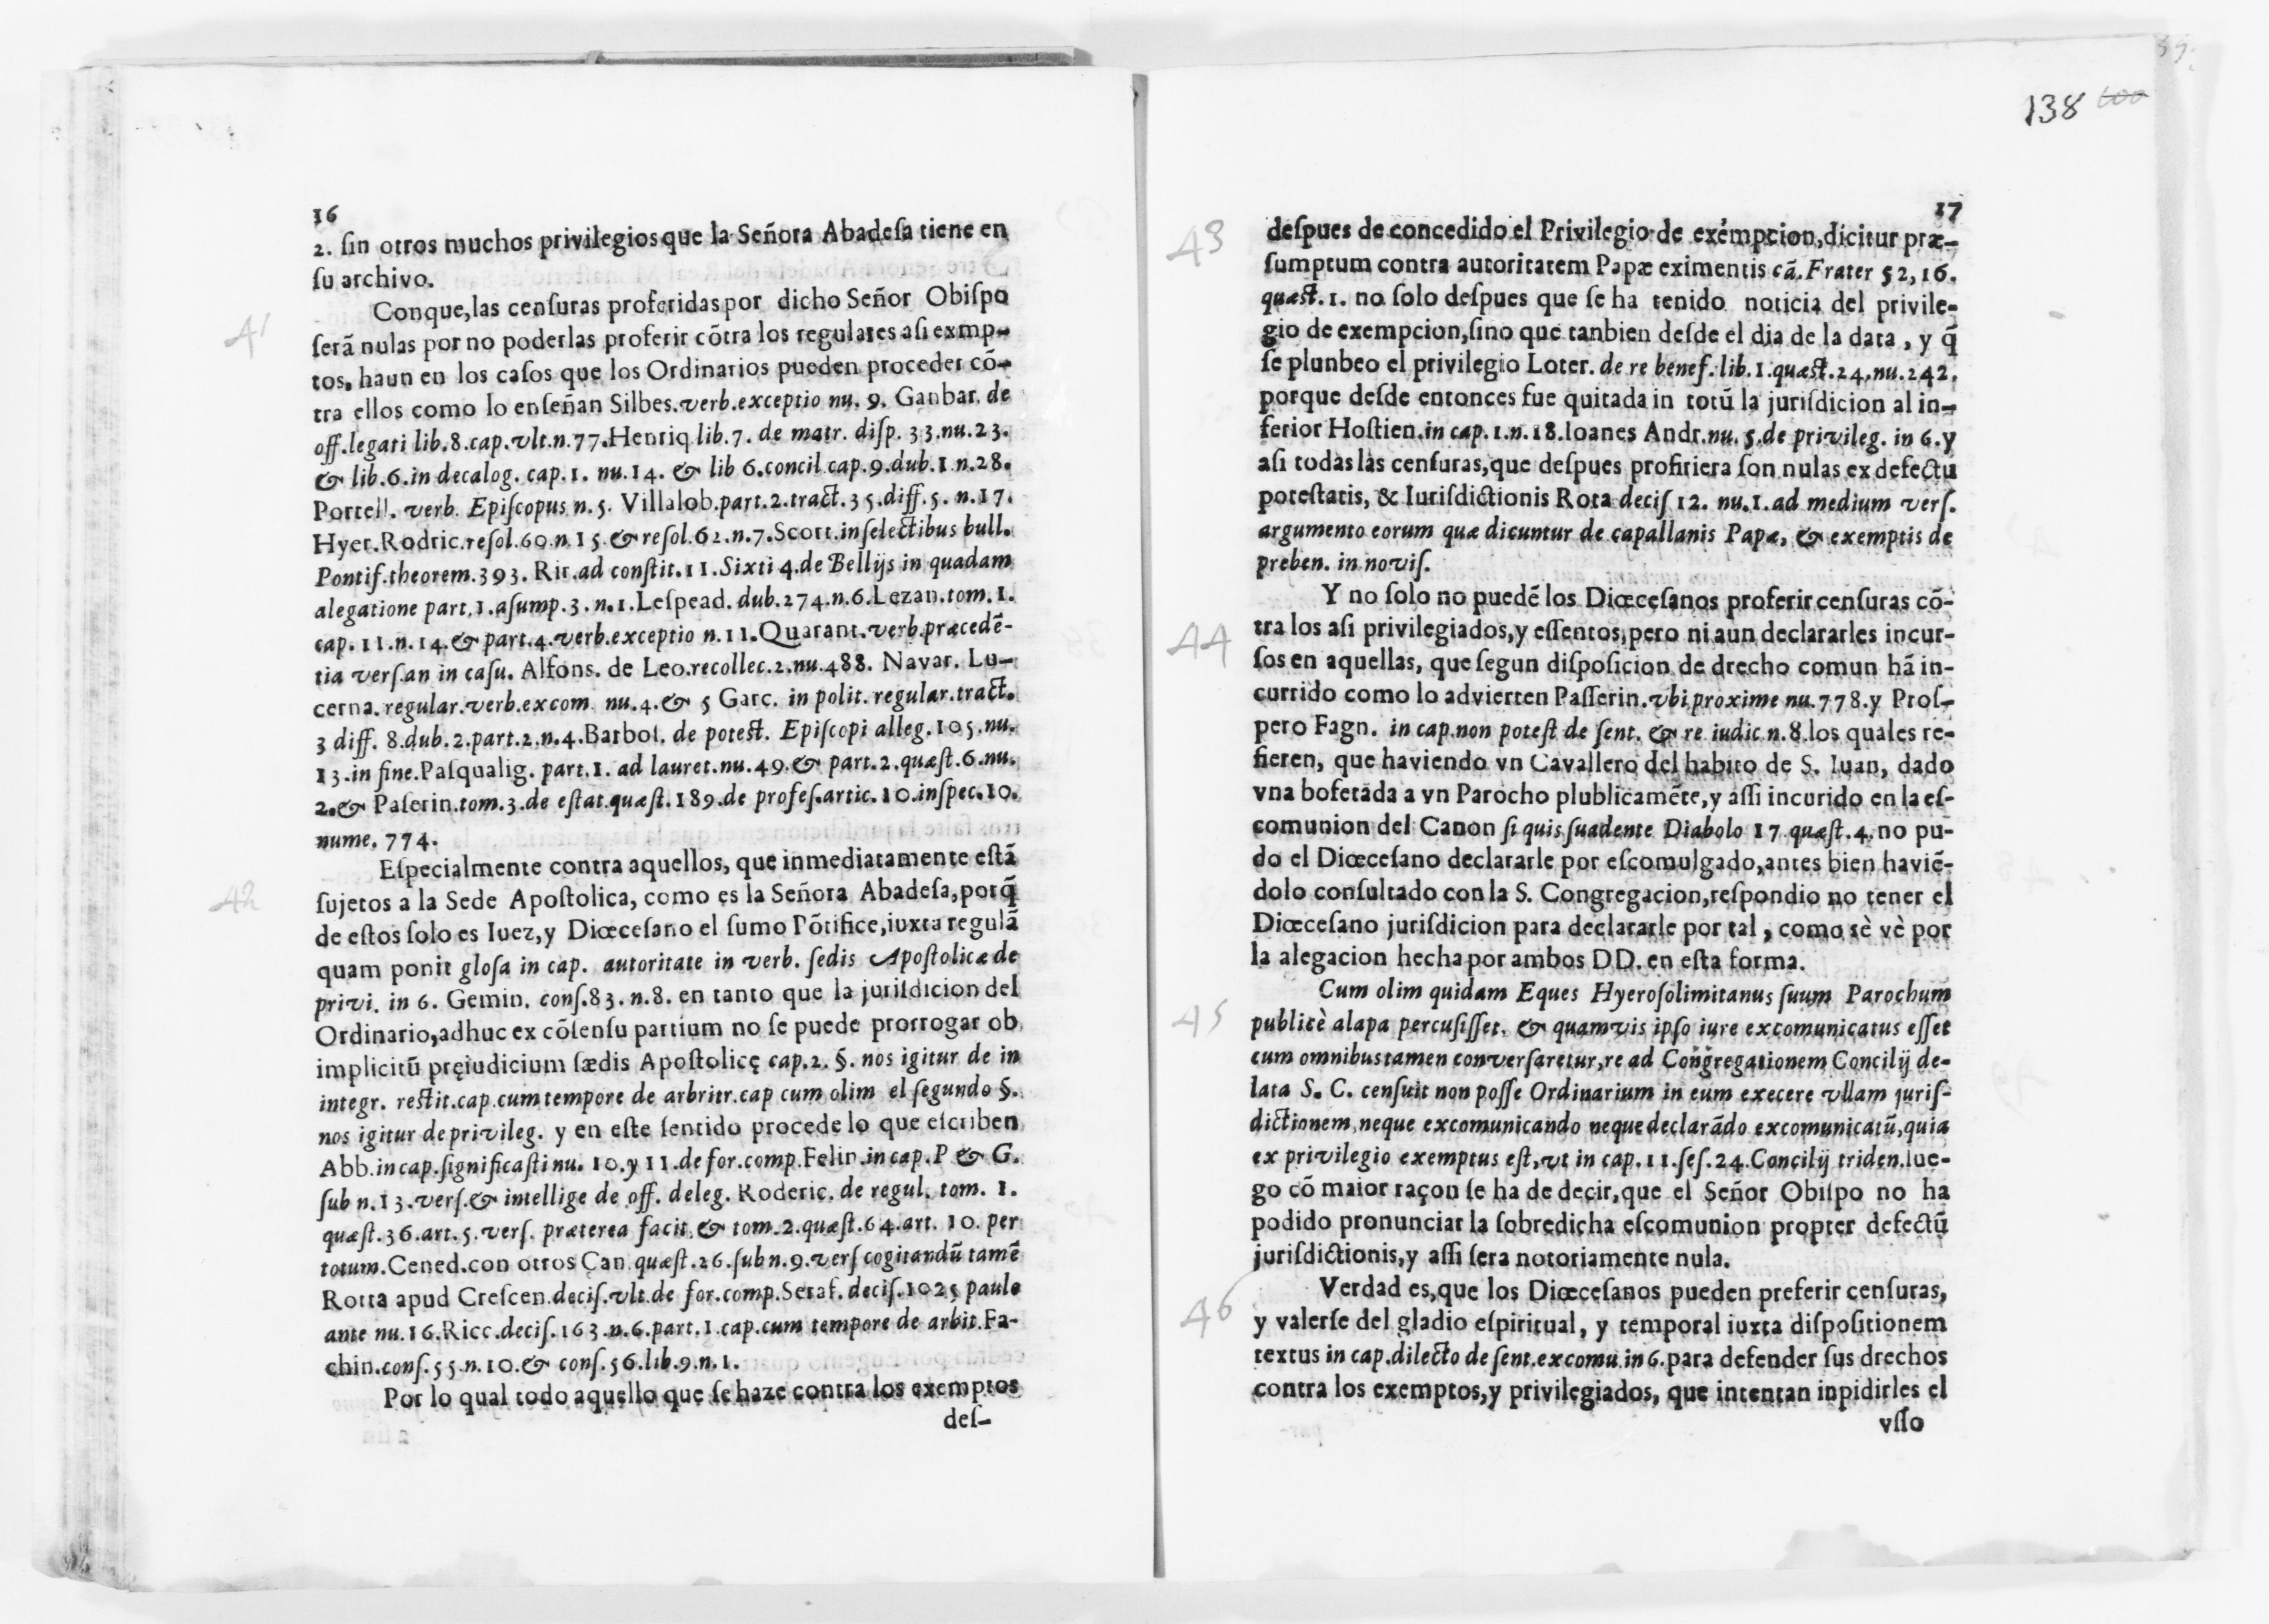 16
2. ſin otros muchos privilegios que la Señora Abadeſa tiene en
ſu archivo.
41
Conque, las cenſuras proferidas por dicho Señor Obiſpo
ſerã nulas por no poderlas proferir cõtra los regulares aſi exmp-
tos, haun en los caſos que los Ordinarios pueden proceder cõ-
tra ellos como lo enſeñan Silbes. verb. exceptio nu. 9. Ganbar. de
off. legati lib. 8. cap. vlt. n. 77. Henriq lib. 7. de matr. diſp. 33. nu. 23.
& lib. 6. in decalog. cap. 1. nu. 14. & lib 6. concil cap. 9. dub. 1 n. 28.
Portell. verb. Epiſcopus n. 5. Villalob. part. 2. tract. 35. diff. 5. n. 17.
Hyer. Rodric. reſol. 60. n. 15. & reſol. 62. n. 7. Scort. in ſelectibus bull.
Pontif. theorem. 393. Ric. ad conſtit. 11. Sixti 4. de Bellijs in quadam
alegatione part. 1. aſump. 3. n. 1. Leſpead. dub. 274. n. 6. Lezan. tom. 1.
cap. 11. n. 14. & part. 4. verb. exceptio n. 11. Quarant. verb. præcedẽ-
tia verſ. an in caſu. Alfons. de Leo. recollec. 2. nu. 488. Navar. Lu-
cerna. regular. verb. excom. nu. 4. & 5 Garc. in polit. regular. tract.
3 diff. 8. dub. 2. part. 2. n. 4. Barboſ. de poteſt. Epiſcopi alleg. 105. nu.
13. in fine. Paſqualig. part. 1. ad lauret. nu. 49. & part. 2. quæſt. 6. nu.
2. & Paſerin. tom. 3. de eſtat. quæſt. 189. de profeſ. artic. 10. inſpec. 10.
nume. 774.
42
Eſpecialmente contra aquellos, que inmediatamente eſtã
ſujetos a la Sede Apoſtolica, como es la Señora Abadeſa, porq̃
de eſtos ſolo es Iuez, y Diœceſano el ſumo Põtifice, iuxta regulã
quam ponit gloſa in cap. autoritate in verb. ſedis Apoſtolicæ de
privi. in 6. Gemin. conſ. 83. n. 8. en tanto que la juriſdicion del
Ordinario, adhuc ex cõſenſu partium no ſe puede prorrogar ob
implicitũ pręiudicium ſædis Apoſtolicę cap. 2. §. nos igitur de in
integr. reſtit. cap. cum tempore de arbritr. cap cum olim el ſegundo §.
nos igitur de privileg. y en eſte ſentido procede lo que eſcriben
Abb. in cap. ſignificaſti nu. 10. y 11. de for. comp. Felin. in cap. P & G.
ſub n. 13. verſ. & intellige de off. deleg. Roderic. de regul. tom. 1.
quæſt. 36. art. 5. verſ. præterea facit, & tom. 2. quæſt. 64. art. 10. per
totum. Cened. con otros Can. quæſt. 26. ſub n. 9. verſ cogitandũ tamẽ
Rotta apud Creſcen. deciſ. vlt. de for. comp. Seraf. deciſ. 1025 paulo
ante nu. 16. Ricc. deciſ. 163. n. 6. part. 1. cap. cum tempore de arbit. Fa-
chin. conſ. 55. n. 10. & conſ. 56. lib. 9. n. 1.
Por lo qual todo aquello que ſe haze contra los exemptos
deſ-
138
17
43
deſpues de concedido el Privilegio de exempcion, dicitur præ-
ſumptum contra autoritatem Papæ eximentis cã. Frater 52, 16.
quæſt. 1. no ſolo deſpues que ſe ha tenido noticia del privile-
gio de exempcion, ſino que tanbien deſde el dia de la data, y q̃
ſe plunbeo el privilegio Loter. de re benef. lib. 1. quæſt. 24. nu. 242.
porque deſde entonces fue quitada in totũ la juriſdicion al in-
ferior Hoſtien. in cap. 1. n. 18. Ioanes Andr. nu. 5. de privileg. in 6. y
aſi todas las cenſuras, que deſpues profiriera ſon nulas ex defectu
poteſtatis, & Iuriſdictionis Rota deciſ 12. nu. 1. ad medium verſ.
argumento eorum quæ dicuntur de capallanis Papæ, & exemptis de
preben. in noviſ.
44
Y no ſolo no puedẽ los Diœceſanos proferir cenſuras cõ-
tra los aſi privilegiados, y eſſentos, pero ni aun declararles incur-
ſos en aquellas, que ſegun diſpoſicion de drecho comun hã in-
currido como lo advierten Paſſerin. vbi proxime nu. 778. y Proſ-
pero Fagn. in cap. non poteſt de ſent. & re iudic. n. 8. los quales re-
fieren, que haviendo vn Cavallero del habito de S. Iuan, dado
vna bofetada a vn Parocho plublicamẽte, y aſſi incurido en la eſ-
comunion del Canon ſi quis ſuadente Diabolo 17 quæſt. 4. no pu-
do el Diœceſano declararle por eſcomulgado, antes bien haviẽ-
dolo conſultado con la S. Congregacion, reſpondio no tener el
Diœceſano juriſdicion para declararle por tal, como sè vè por
la alegacion hecha por ambos DD. en eſta forma.
45
Cum olim quidam Eques Hyeroſolimitanus ſuum Parochum
publicè alapa percuſiſſet, & quamvis ipſo iure excomunicatus eſſet
cum omnibus tamen converſaretur, re ad Congregationem Concilij de-
lata S. C. cenſuit non poſſe Ordinarium in eum execere vllam juriſ-
dictionem, neque excomunicando neque declarãdo excomunicatũ, quia
ex privilegio exemptus eſt, vt in cap. 11. ſeſ. 24. Concilij triden. lue-
go cõ maior raçon ſe ha de decir, que el Señor Obiſpo no ha
podido pronunciar la ſobredicha eſcomunion propter defectũ
juriſdictionis, y aſſi ſera notoriamente nula.
46
Verdad es, que los Diœceſanos pueden preferir cenſuras,
y valerſe del gladio eſpiritual, y temporal iuxta diſpoſitionem
textus in cap. dilecto de ſent. excomu. in 6. para defender ſus drechos
contra los exemptos, y privilegiados, que intentan inpidirles el
vſſo